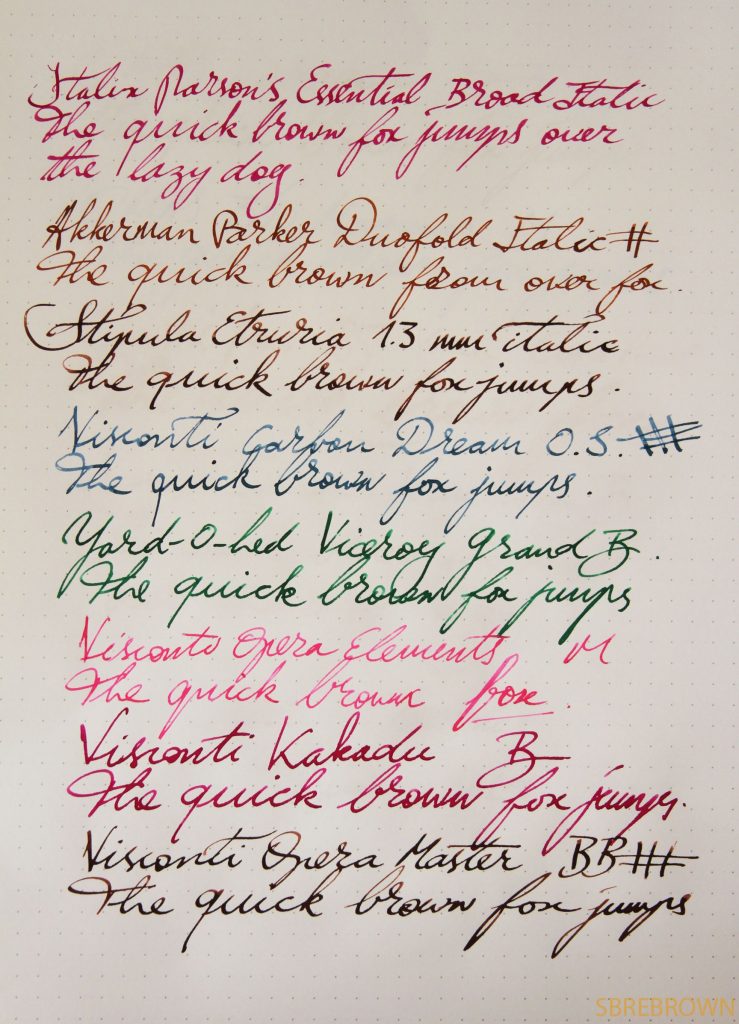 Italix Parson's Essential Broad Italic
The quick brown fox jumps over
the lazy dog.
Akkerman Parker Duofold Italic
The quick brown from over fox.
Stipula Etruria 1.3 mm italic
The quick brown fox jumps.
Visconti Carbon Dream O.S.
The quick brown fox jumps.
Yard-O-Led Viceroy Grand B.
The quick brown fox jumps
Visconti Opera Elements M
The quick brown fox.
Visconti Kakadu B
The quick brown fox jumps.
Visconti Opera Master BB
The quick brown fox jumps
SBREBROWN